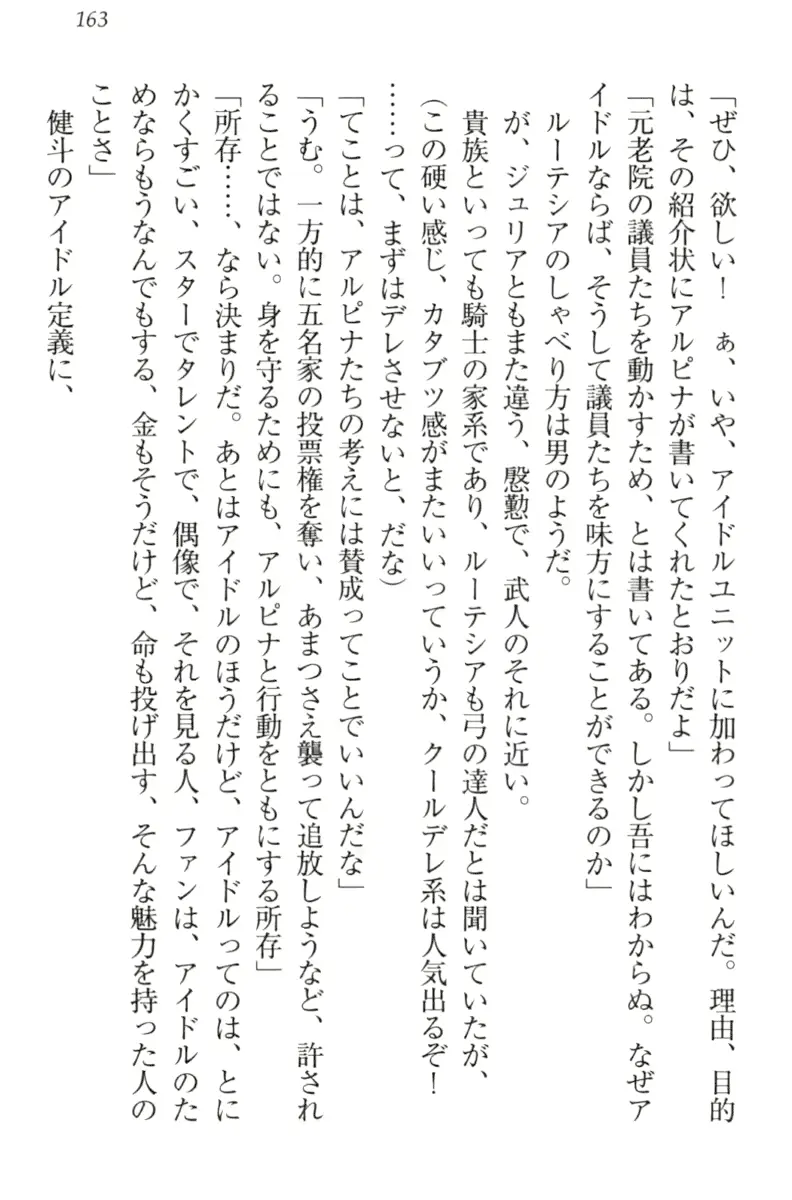 163
「ぜひ、欲しい！　ぁ、いや、アイドルユニットに加わってほしいんだ。理由、目的
は、その紹介状にアルピナが書いてくれたとおりだよ」
「元老院の議員たちを動かすため、とは書いてある。しかし吾にはわからぬ。なぜア
イドルならば、そうして議員たちを味方にすることができるのか」
　ルーテシアのしゃべり方は男のようだ。
　が、ジュリアともまた違う、慇懃で、武人のそれに近い。
　貴族といっても騎士の家系であり、ルーテシアも弓の達人だとは聞いていたが、
（この硬い感じ、カタブツ感がまたいいっていうか、クールデレ系は人気出るぞ！
……って、まずはデレさせないと、だな）
「てことは、アルピナたちの考えには賛成ってことでいいんだな」
「うむ。一方的に五名家の投票権を奪い、あまつさえ襲って追放しようなど、許され
ることではない。身を守るためにも、アルピナと行動をともにする所存」
「所存……、なら決まりだ。あとはアイドルのほうだけど、アイドルってのは、とに
かくすごい、スターでタレントで、偶像で、それを見る人、ファンは、アイドルのた
めならもうなんでもする、金もそうだけど、命も投げ出す、そんな魅力を持った人の
ことさ」
　健斗のアイドル定義に、